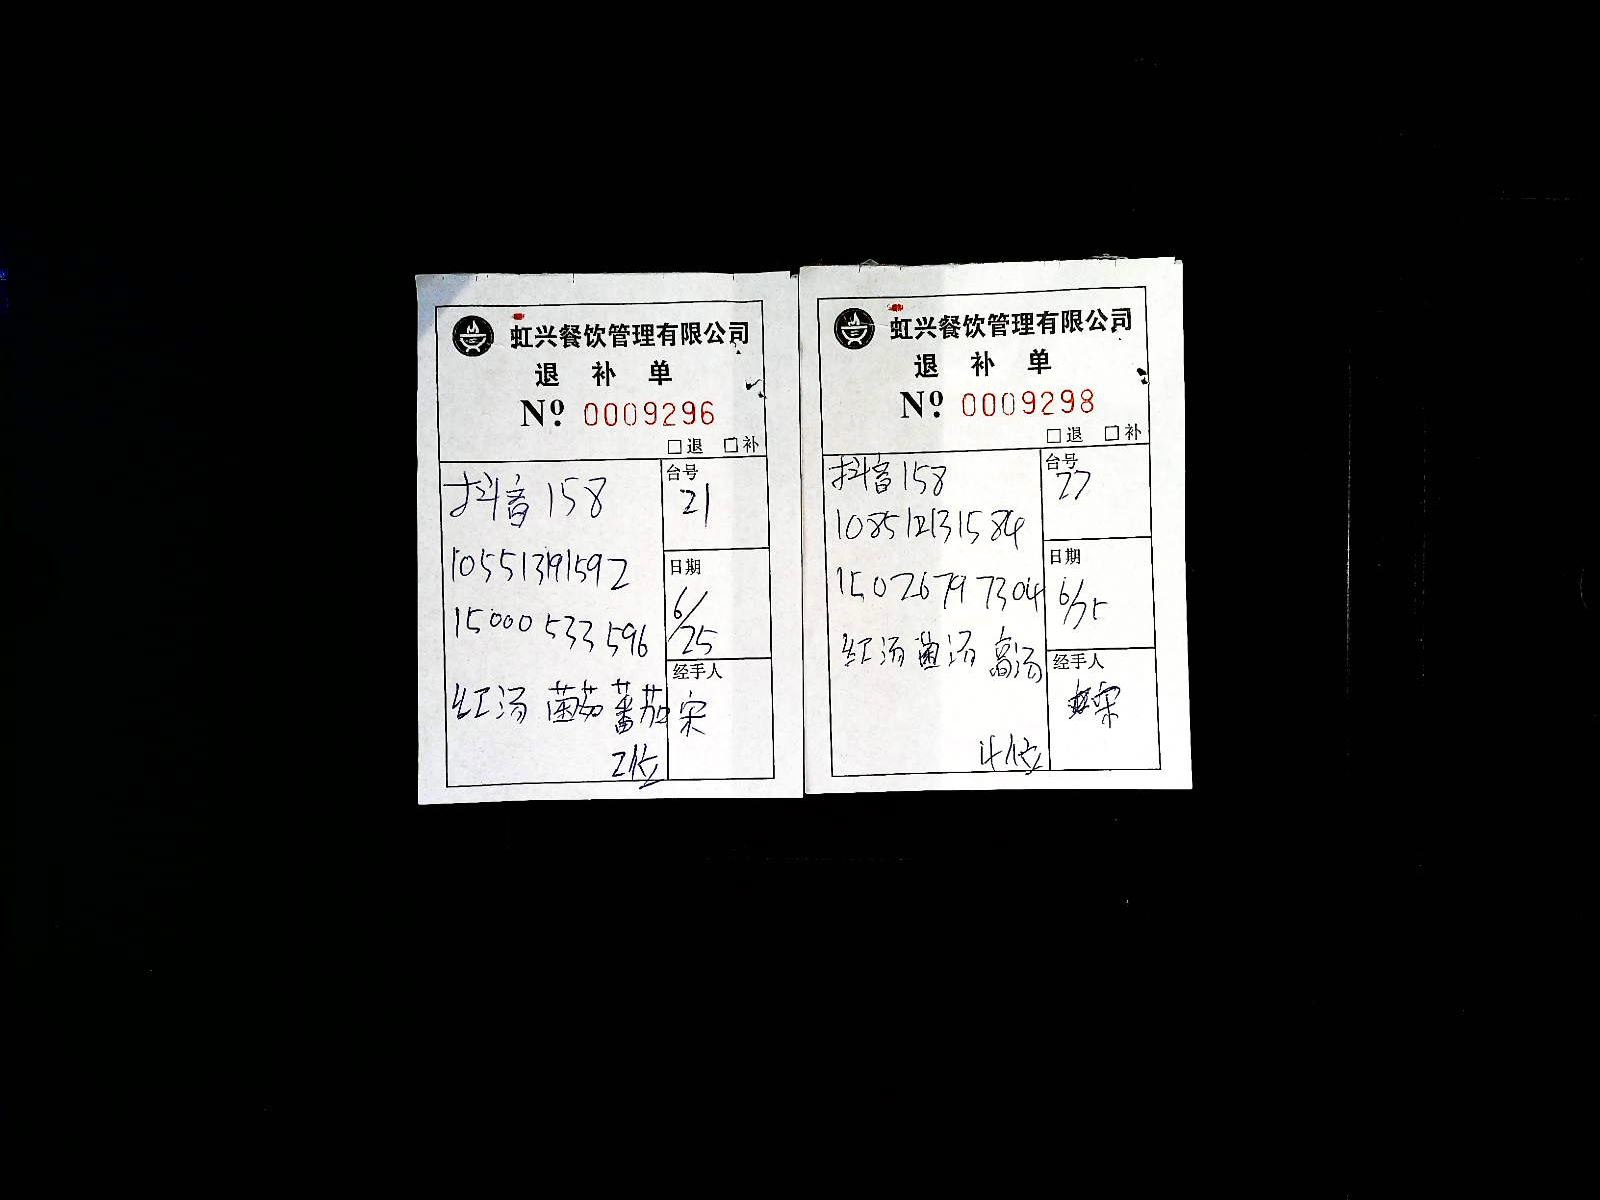 虹兴餐饮管理有限公司
退 补 单
Nº 0009296
□退 □补
抖音158
10551391592
15000533596
红汤 菌菇 蕃茄
2位
台号
21
日期
6/25
经手人
宋
虹兴餐饮管理有限公司
退 补 单
Nº 0009298
□退 □补
抖音158
108512131584
15026797304
红汤 菌汤 高汤
4位
台号
27
日期
6/25
经手人
宋